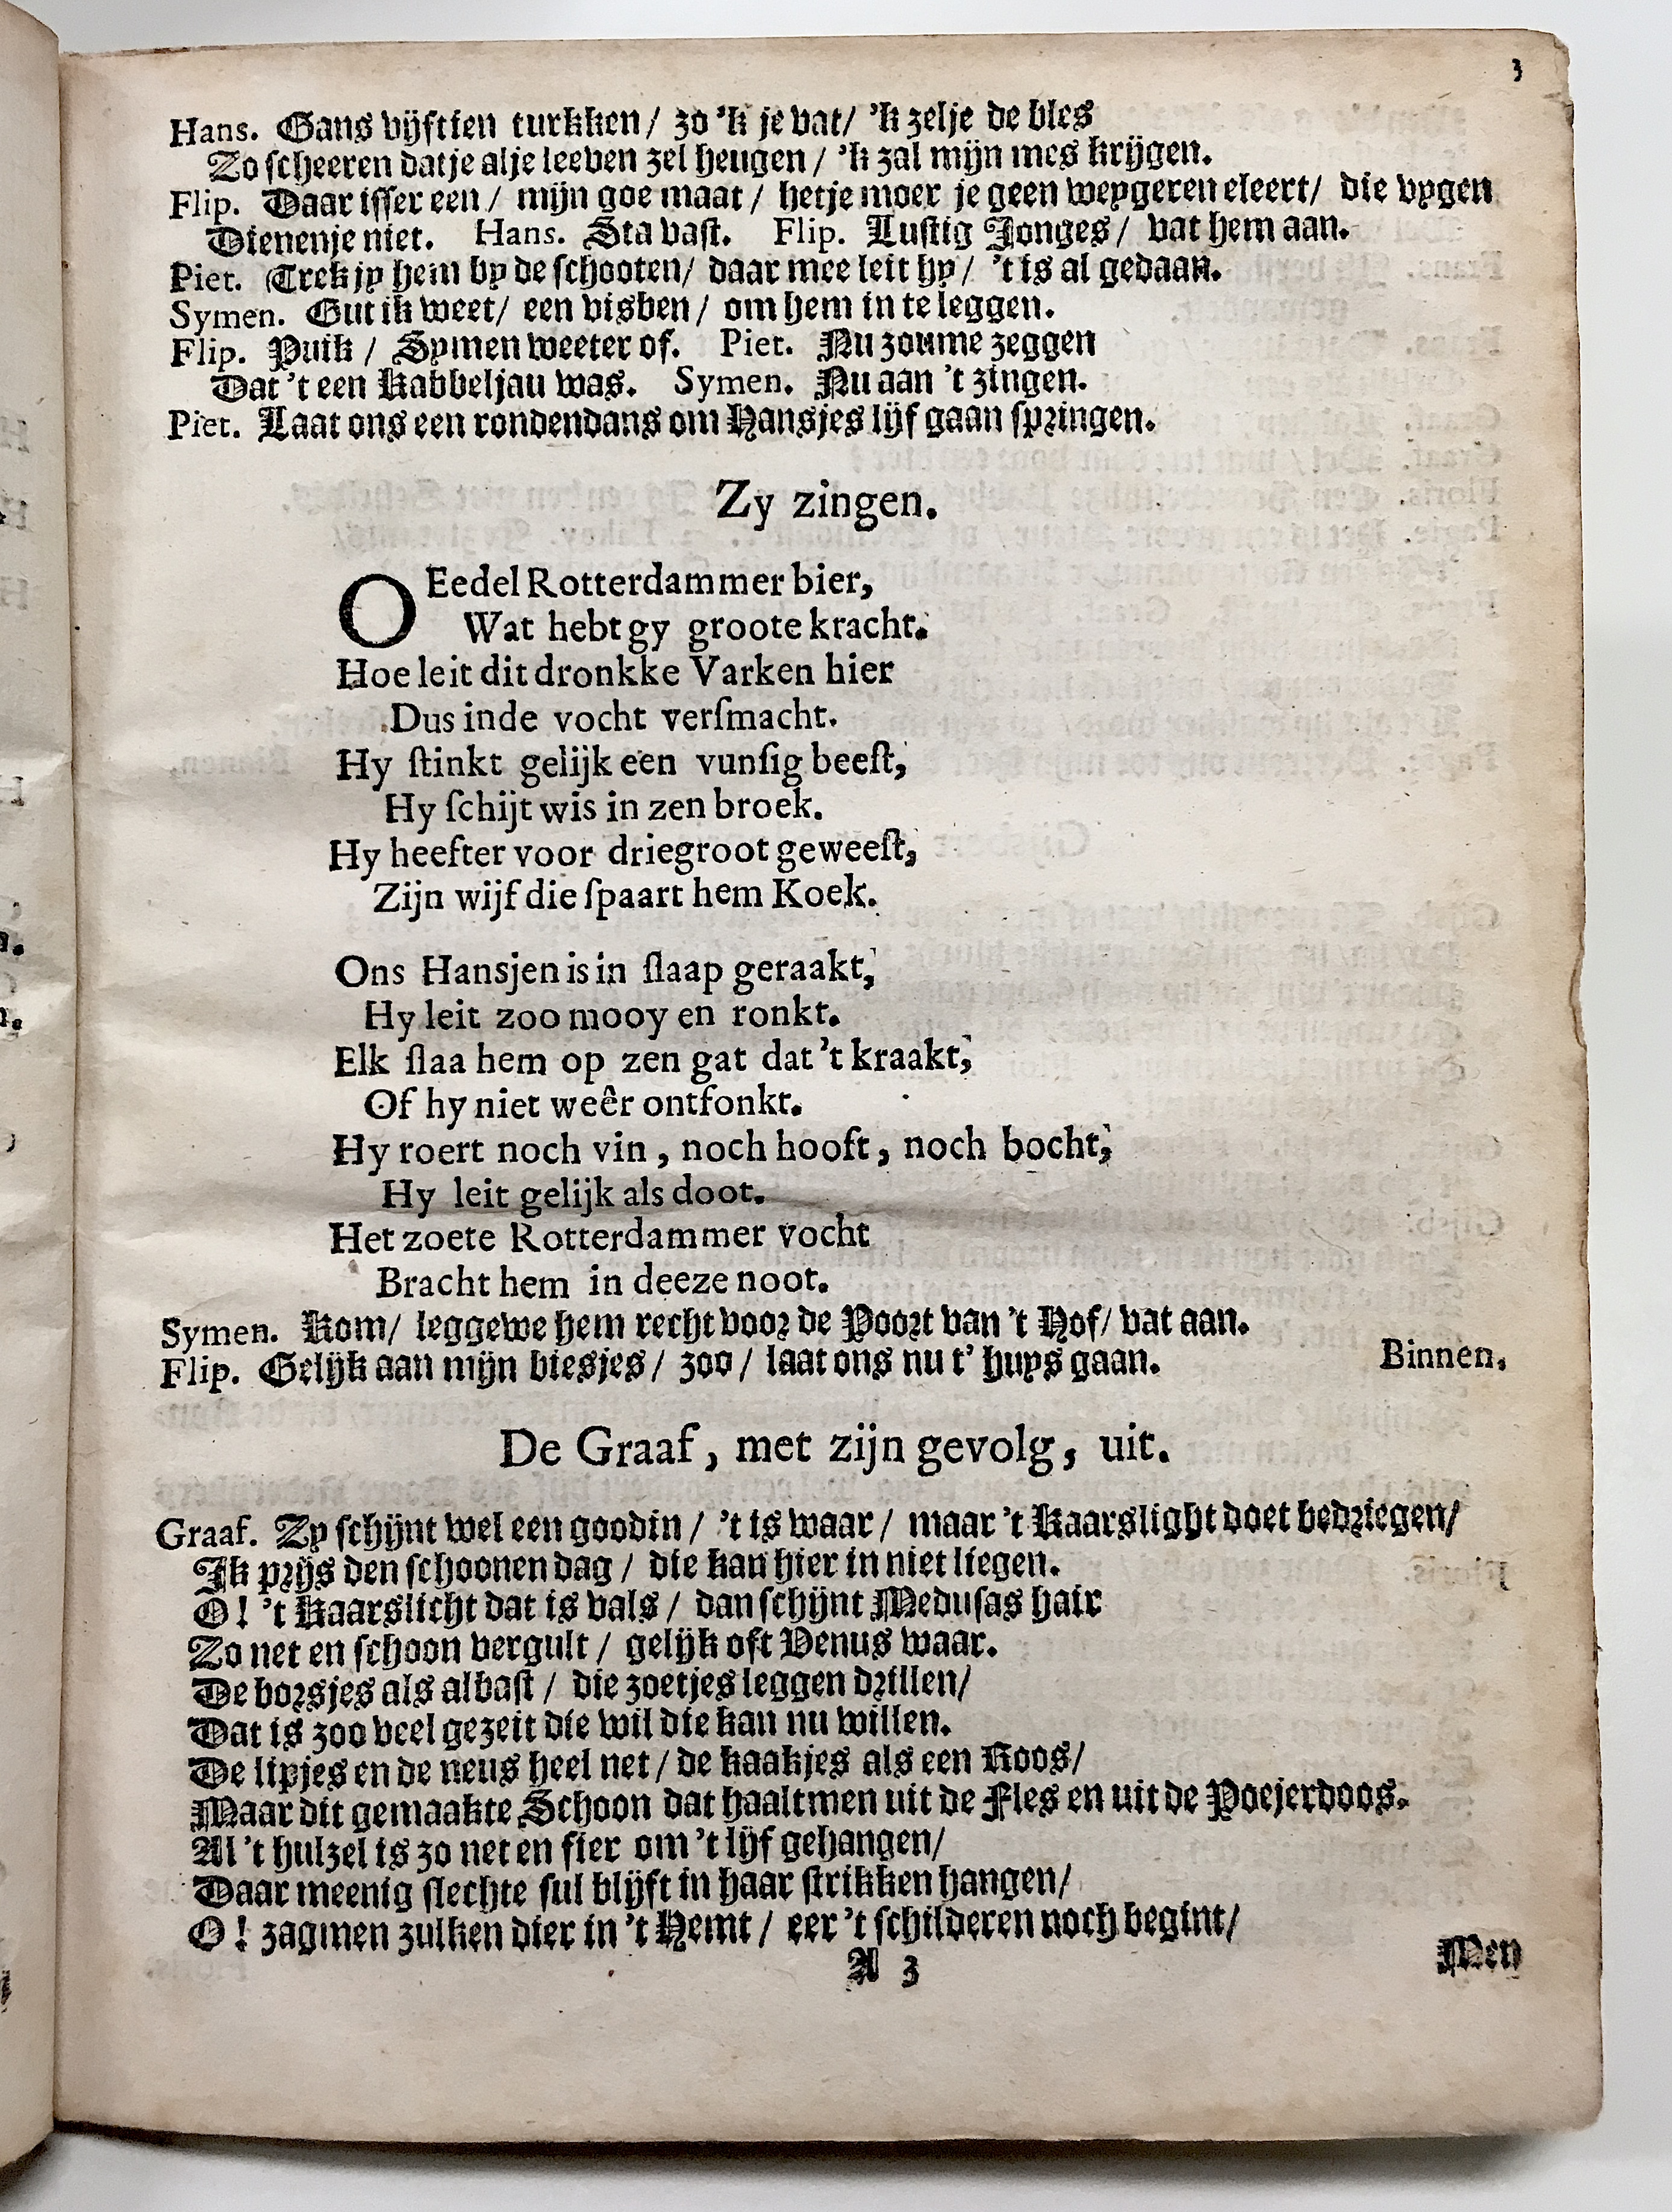 3
Hans. Gans vijftien turkken / zo 'k je vat / 'k zelje de bles
Zo scheeren datje alje leeven zel heugen / 'k zal mijn mes krijgen.
Flip. Daar isser een / mijn goe maat / hetje moer je geen weygeren eleert / die vygen
Dienenje niet. Hans. Sta vast. Flip. Lustig Jonges / vat hem aan.
Piet. Trek jy hem by de schooten / daar mee leit hy / 't is al gedaan.
Symen. Gut ik weet / een visben / om hem in te leggen.
Flip. Puik / Symen weeter of. Piet. Nu zoume zeggen
Dat 't een Kabbeljau was. Symen. Nu aan 't zingen.
Piet. Laat ons een rondendans om Hansjes lijf gaan springen.
Zy zingen.
O Eedel Rotterdammer bier,
Wat hebt gy groote kracht.
Hoe leit dit dronkke Varken hier
Dus inde vocht versmacht.
Hy stinkt gelijk een vunsig beest,
Hy schijt wis in zen broek.
Hy heefter voor driegroot geweest,
Zijn wijf die spaart hem Koek.
Ons Hansjen is in slaap geraakt,
Hy leit zoo mooy en ronkt.
Elk slaa hem op zen gat dat 't kraakt,
Of hy niet weêr ontfonkt.
Hy roert noch vin, noch hooft, noch bocht,
Hy leit gelijk als doot.
Het zoete Rotterdammer vocht
Bracht hem in deeze noot.
Symen. Kom / leggewe hem recht voor de Poort van 't Hof / vat aan.
Flip. Gelijk aan mijn biesjes / zoo / laat ons nu t' huys gaan. Binnen.
De Graaf, met zijn gevolg, uit.
Graaf. Zy schijnt wel een goodin / 't is waar / maar 't Kaarslight doet bedriegen /
Ik prijs den schoonen dag / die kan hier in niet liegen.
O! 't Kaarslicht dat is vals / dan schijnt Medusas hair
Zo net en schoon vergult / gelijk oft Venus waar.
De borsjes als albast / die zoetjes leggen drillen /
Dat is zoo veel gezeit die wil die kan nu willen.
De lipjes en de neus heel net / de kaakjes als een Roos /
Maar dit gemaakte Schoon dat haaltmen uit de Fles en uit de Poejerdoos.
Al 't hulzel is zo net en fier om 't lijf gehangen /
Daar meenig slechte sul blijft in haar strikken hangen /
O! zagmen zulken dier in 't Hemt / eer 't schilderen noch begint /
A 3 Men